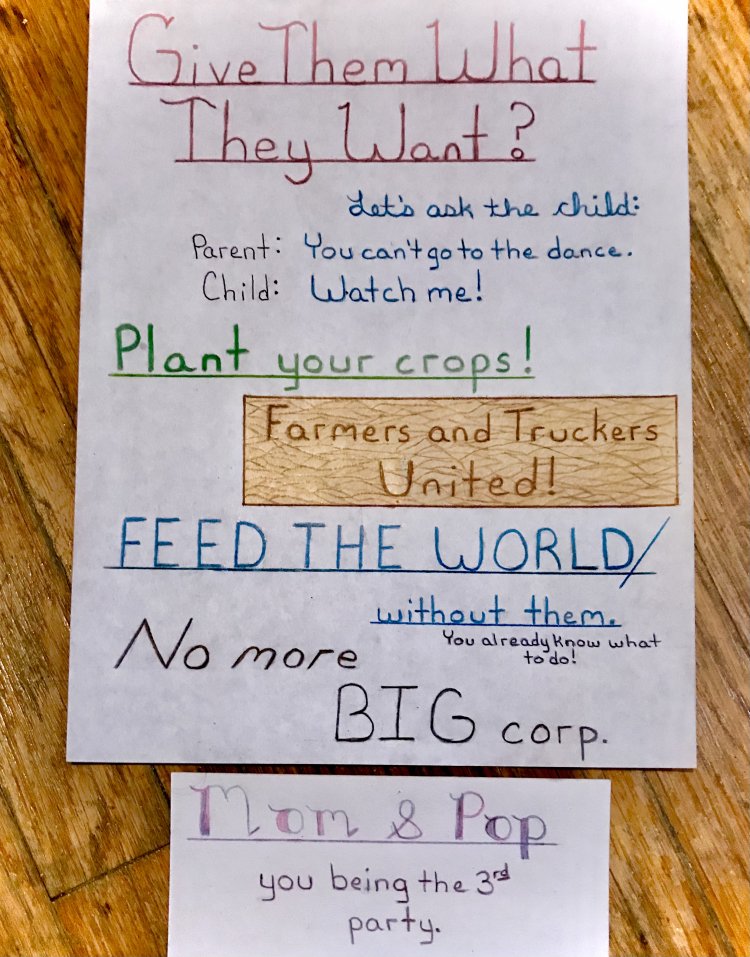 Give Them What
They Want?
Let's ask the child:
Parent: You can't go to the dance.
Child: Watch me!
Plant your crops!
Farmers and Truckers
United!
FEED THE WORLD/
without them.
You already know what
to do!
No more
BIG corp.
Mom & Pop
you being the 3rd
party.